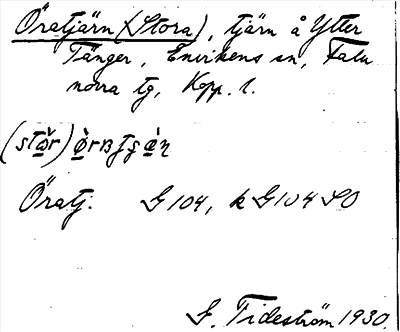 Öratjärn (Stora), tjärn å Ytter
Tänger, Envikens sn, Falu
norra tg, Kopp. l.
Öratj. G 104, k G 104 SO
G. Tideström 1930.